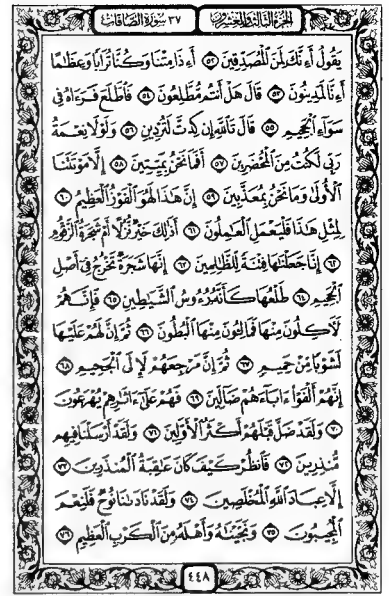 الجزء الثالث والعشرون
٣٧ سورة الصافات
يَقُولُ أَءِنَّكَ لَمِنَ ٱلْمُصَدِّقِينَ ٥٢ أَءِذَا مِتْنَا وَكُنَّا تُرَابًا وَعِظَٰمًا
أَءِنَّا لَمَدِينُونَ ٥٣ قَالَ هَلْ أَنتُم مُّطَّلِعُونَ ٥٤ فَٱطَّلَعَ فَرَءَاهُ فِى
سَوَآءِ ٱلْجَحِيمِ ٥٥ قَالَ تَٱللَّهِ إِن كِدتَّ لَتُرْدِينِ ٥٦ وَلَوْلَا نِعْمَةُ
رَبِّى لَكُنتُ مِنَ ٱلْمُحْضَرِينَ ٥٧ أَفَمَا نَحْنُ بِمَيِّتِينَ ٥٨ إِلَّا مَوْتَتَنَا
ٱلْأُولَىٰ وَمَا نَحْنُ بِمُعَذَّبِينَ ٥٩ إِنَّ هَٰذَا لَهُوَ ٱلْفَوْزُ ٱلْعَظِيمُ ٦٠
لِمِثْلِ هَٰذَا فَلْيَعْمَلِ ٱلْعَٰمِلُونَ ٦١ أَذَٰلِكَ خَيْرٌ نُّزُلًا أَمْ شَجَرَةُ ٱلزَّقُّومِ
٦٢ إِنَّا جَعَلْنَٰهَا فِتْنَةً لِّلظَّٰلِمِينَ ٦٣ إِنَّهَا شَجَرَةٌ تَخْرُجُ فِىٓ أَصْلِ
ٱلْجَحِيمِ ٦٤ طَلْعُهَا كَأَنَّهُۥ رُءُوسُ ٱلشَّيَٰطِينِ ٦٥ فَإِنَّهُمْ
لَءَاكِلُونَ مِنْهَا فَمَالِـُٔونَ مِنْهَا ٱلْبُطُونَ ٦٦ ثُمَّ إِنَّ لَهُمْ عَلَيْهَا
لَشَوْبًا مِّنْ حَمِيمٍ ٦٧ ثُمَّ إِنَّ مَرْجِعَهُمْ لَإِلَى ٱلْجَحِيمِ ٦٨
إِنَّهُمْ أَلْفَوْا۟ ءَابَآءَهُمْ ضَآلِّينَ ٦٩ فَهُمْ عَلَىٰٓ ءَاثَٰرِهِمْ يُهْرَعُونَ
٧٠ وَلَقَدْ ضَلَّ قَبْلَهُمْ أَكْثَرُ ٱلْأَوَّلِينَ ٧١ وَلَقَدْ أَرْسَلْنَا فِيهِم
مُّنذِرِينَ ٧٢ فَٱنظُرْ كَيْفَ كَانَ عَٰقِبَةُ ٱلْمُنذَرِينَ ٧٣
إِلَّا عِبَادَ ٱللَّهِ ٱلْمُخْلَصِينَ ٧٤ وَلَقَدْ نَادَىٰنَا نُوحٌ فَلَنِعْمَ
ٱلْمُجِيبُونَ ٧٥ وَنَجَّيْنَٰهُ وَأَهْلَهُۥ مِنَ ٱلْكَرْبِ ٱلْعَظِيمِ ٧٦
٤٤٨